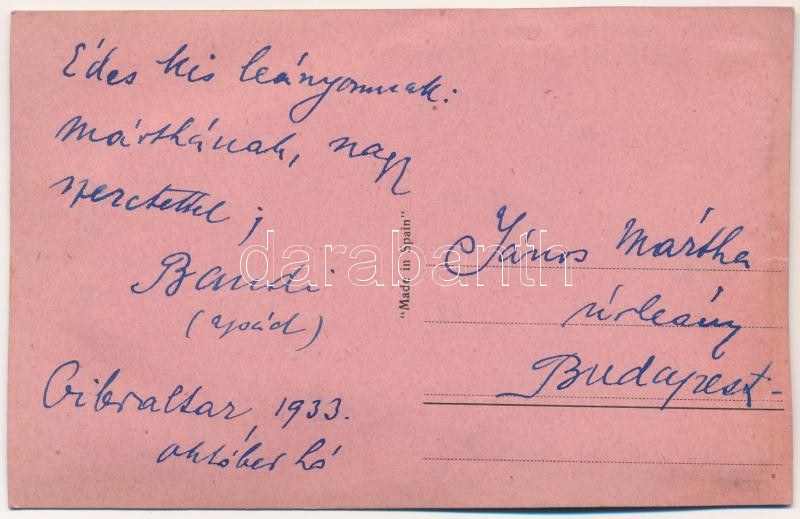 Édes kis leányomnak:
Márthának, nagy
szeretettel;
Bandi
(apád)
Gibraltár, 1933.
október hó
"Made in Spain"
János Mártha
úrleány
Budapest-
darabanth